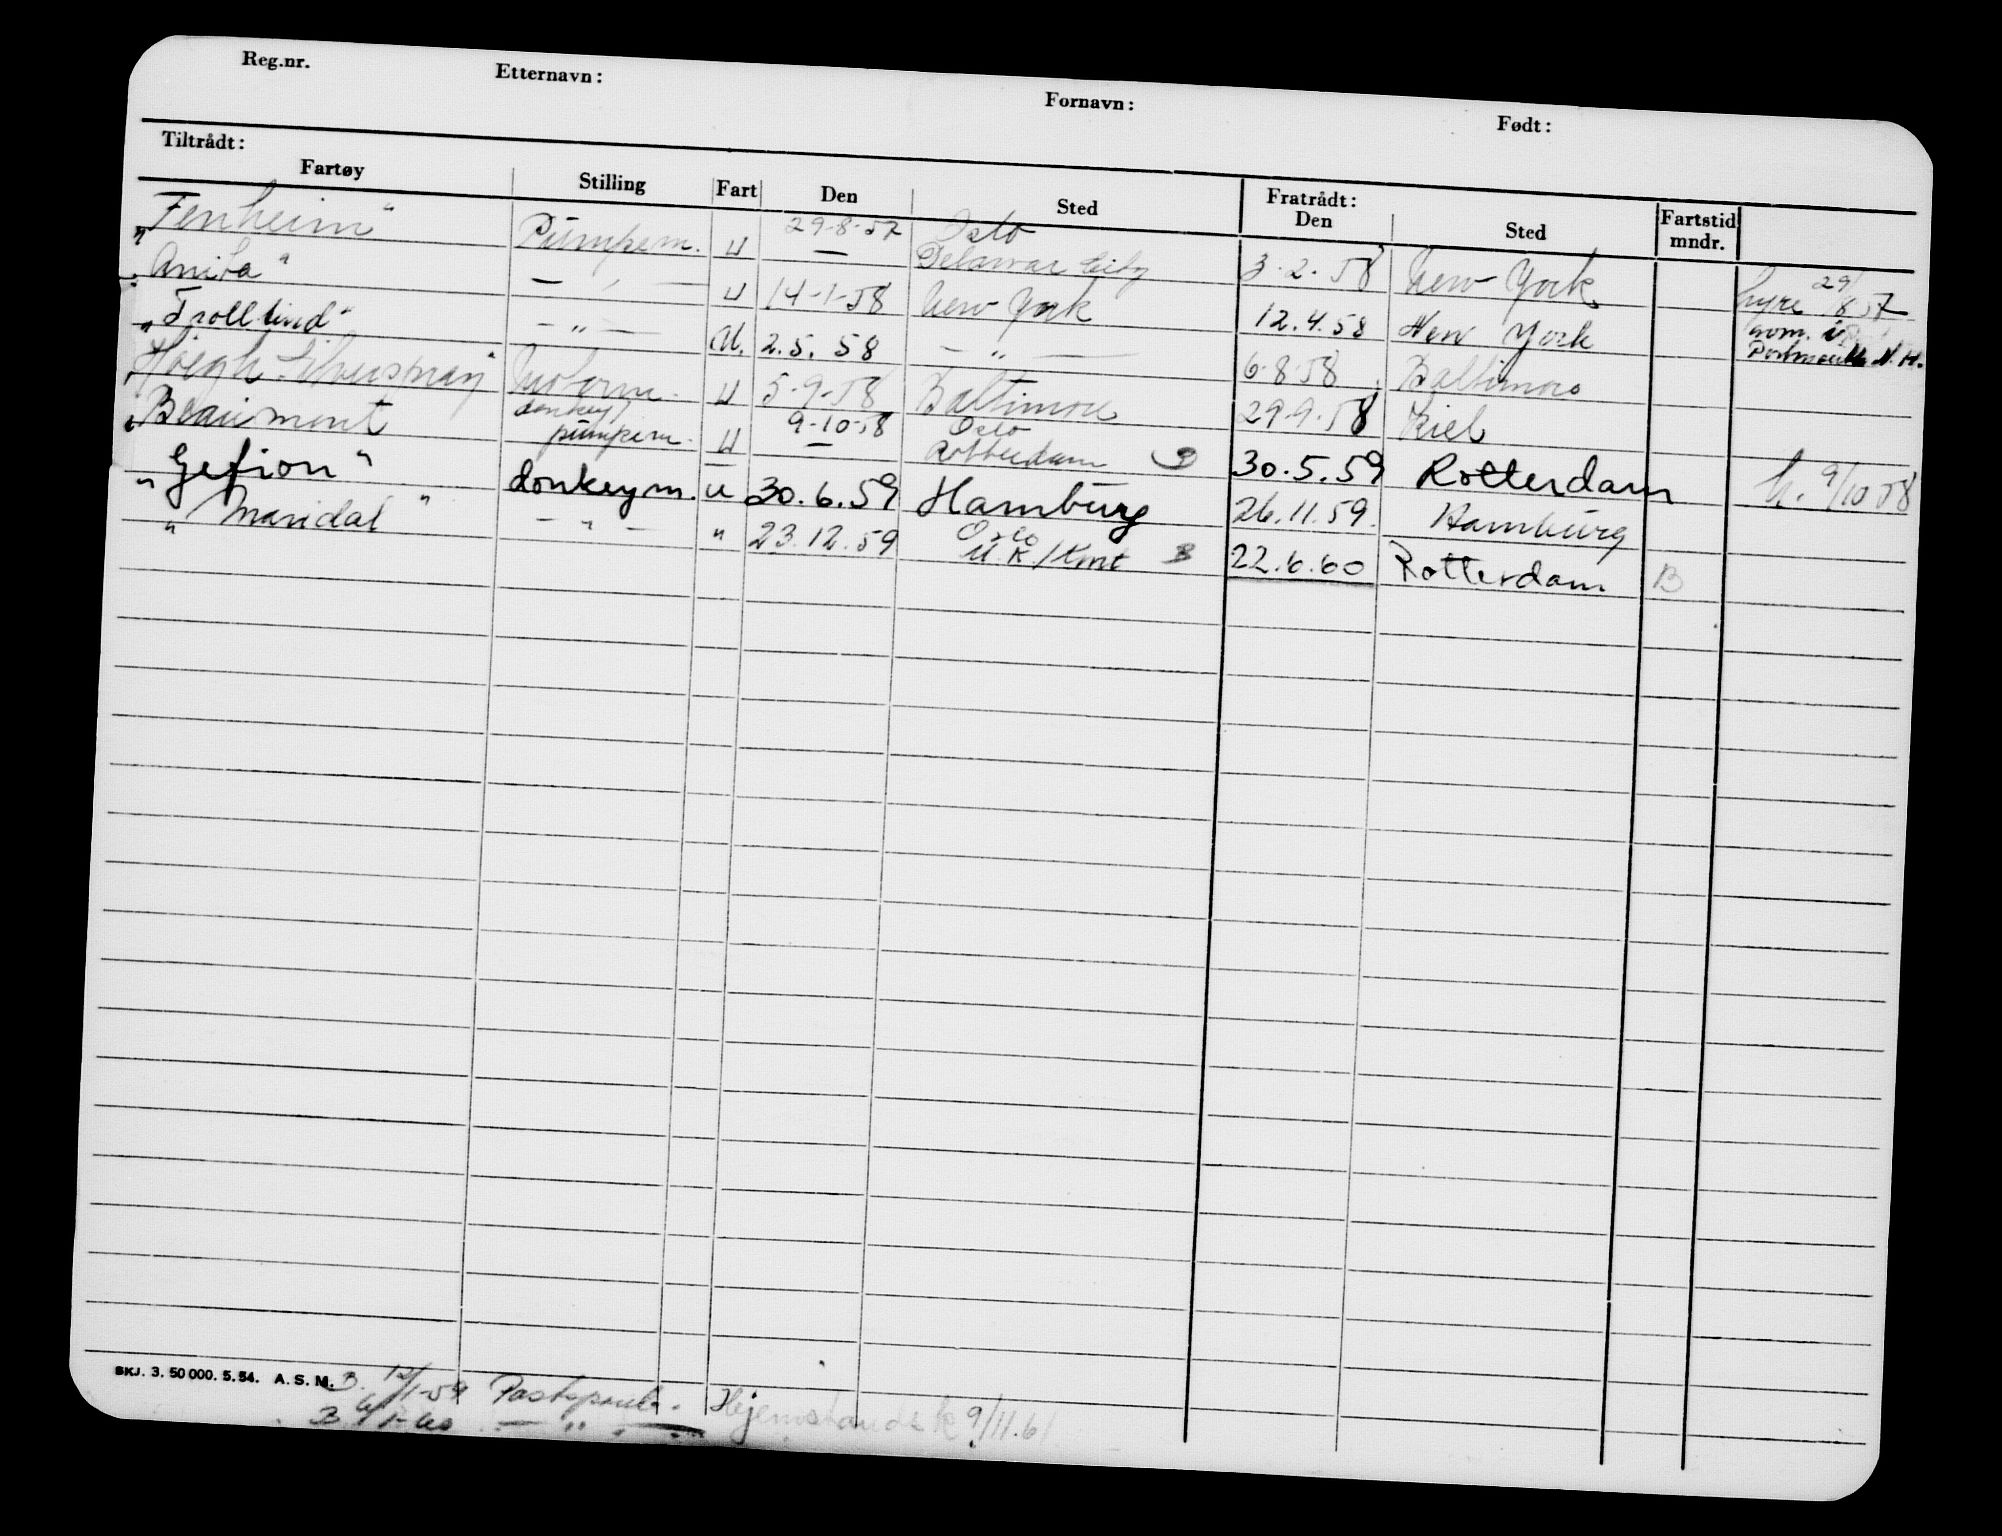 Reg.nr. Etternavn: Fornavn: Født:
Tiltrådt: Fratrådt:
Fartøy Stilling Fart Den Sted Den Sted Fartstid mndr.
"Fenheim" Pumpem. U 29-8-57 Oslo
— Delawar City 3.2.58 New York hyre 29/8 57
"Anita" — " — U 14-1-58 New York 12.4.58 New York mom. i
"Trollvind" — " — U. 2.5.58 — " — 6-8-58 Baltimore Portsmouth N.H.
"Höegh Silverspray" Motorm. U 5-9-58 Baltimore 29.9.58 Kiel
"Beaumont donkey/pumpem. U 9-10-58 Oslo
— Rotterdam 30.5.59 Rotterdam h. 9/10 58
"Gefion" donkeym. u 30.6.59 Hamburg 26.11.59. Hamburg
"Maridal" — " — " 23.12.59 Oslo
U.K/Kont B 22.6.60 Rotterdam B
SKJ. 3. 50 000. 5. 54. A. S. M. B. 12/1-59
B. 6/1-60 — " —
Hjemstands k 9/11.61